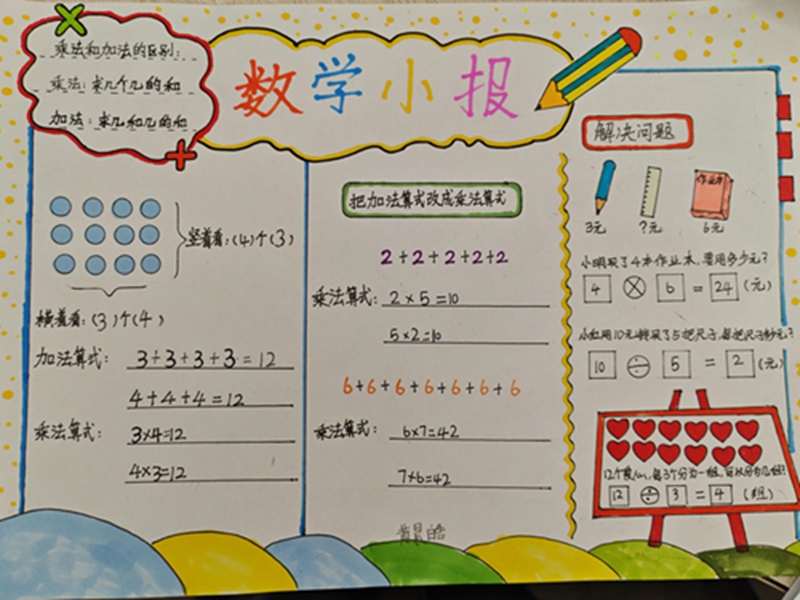 数学小报
乘法和加法的区别:
乘法:求几个几的和
加法:求几和几的和
竖着看:(4)个(3)
横着看:(3)个(4)
加法算式: 3+3+3+3=12
4+4+4=12
乘法算式: 3×4=12
4×3=12
把加法算式改成乘法算式
2+2+2+2+2
乘法算式: 2×5=10
5×2=10
6+6+6+6+6+6+6
乘法算式: 6×7=42
7×6=42
解决问题
作业本
3元 ?元 6元
小明买了4本作业本,要用多少元?
4×6=24(元)
小红用10元钱买了5把尺子,每把尺子多少元?
10÷5=2(元)
12个爱心,每3个分为一组,可以分为几组?
12÷3=4(组)